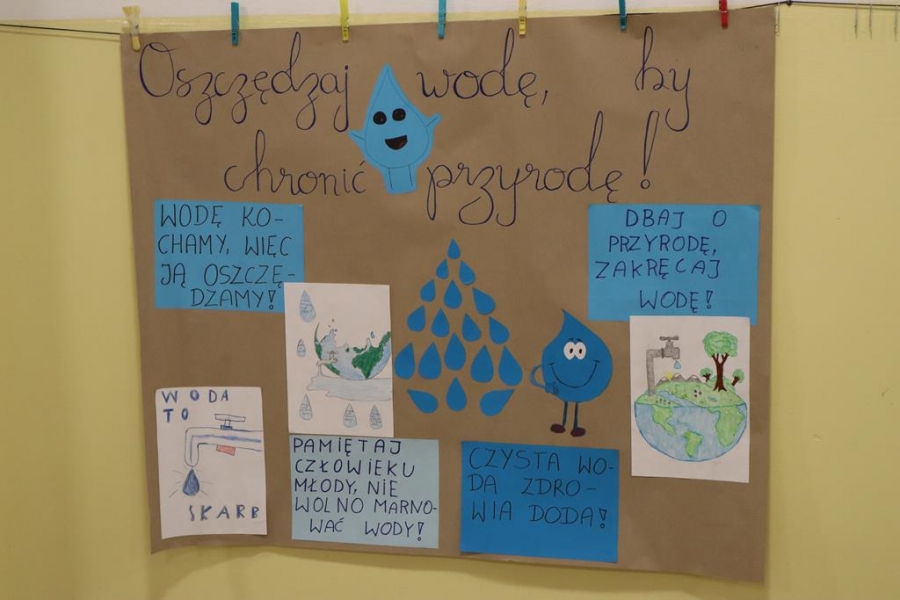 Oszczędzaj wodę, by
chronić przyrodę!
WODĘ KO-
CHAMY, WIĘC
JĄ OSZCZĘ-
DZAMY!
DBAJ O
PRZYRODĘ,
ZAKRĘCAJ
WODĘ!
WODA
TO
SKARB
PAMIĘTAJ
CZŁOWIEKU
MŁODY, NIE
WOLNO MARNO-
WAĆ WODY!
CZYSTA WO-
DA ZDRO-
WIA DODA!